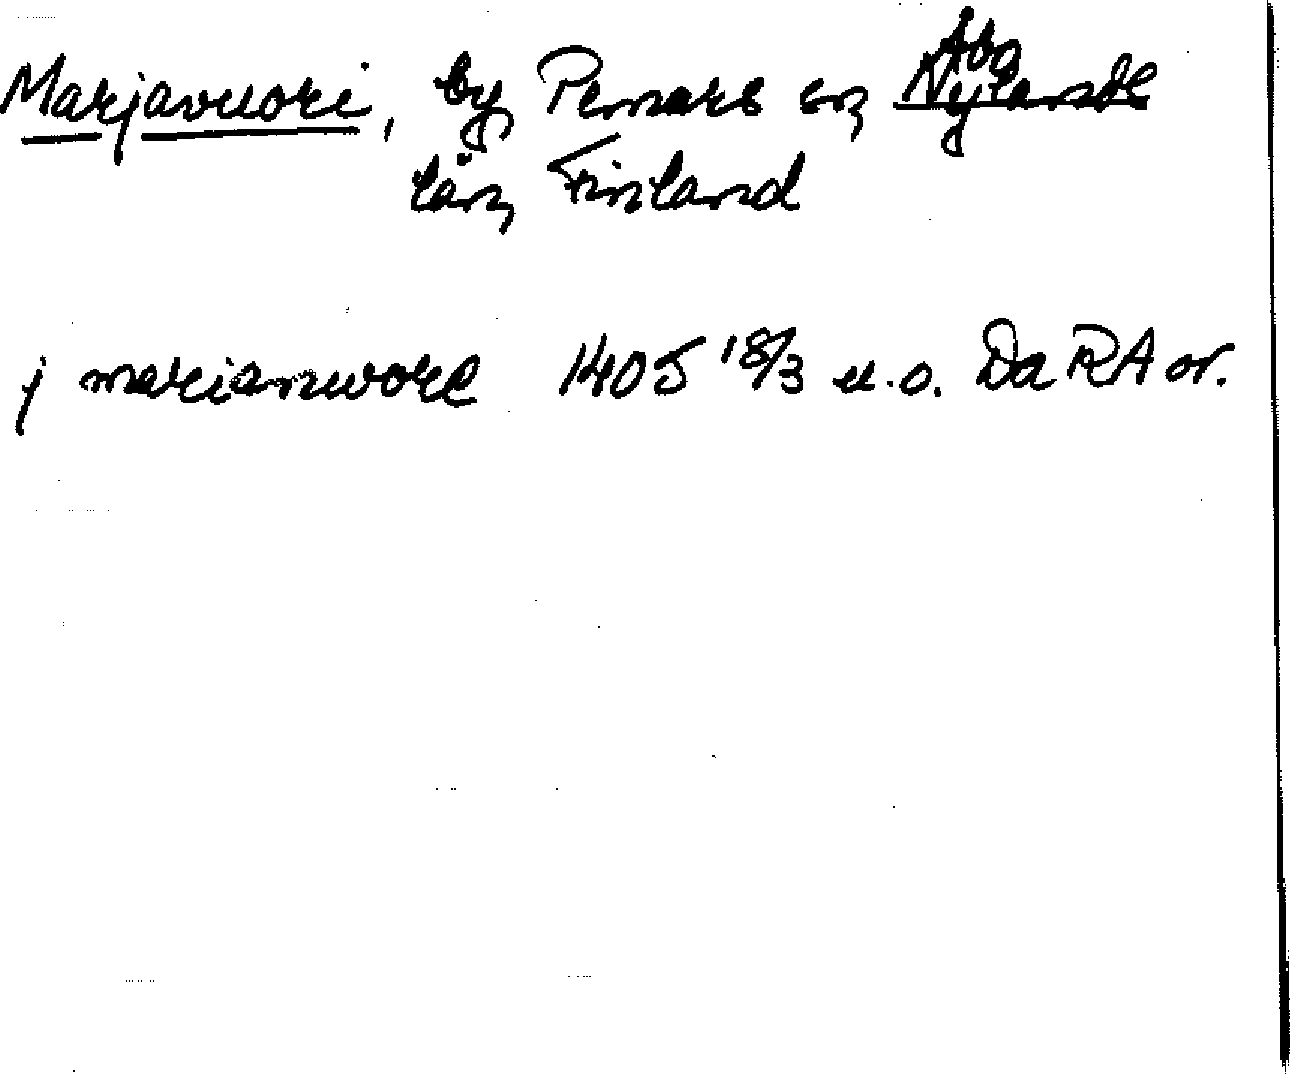 Marjavuori, by Pemare sn, Åbo Nylands
län, Finland
j marianwore 1405 18/3 u.o. Da RA or.